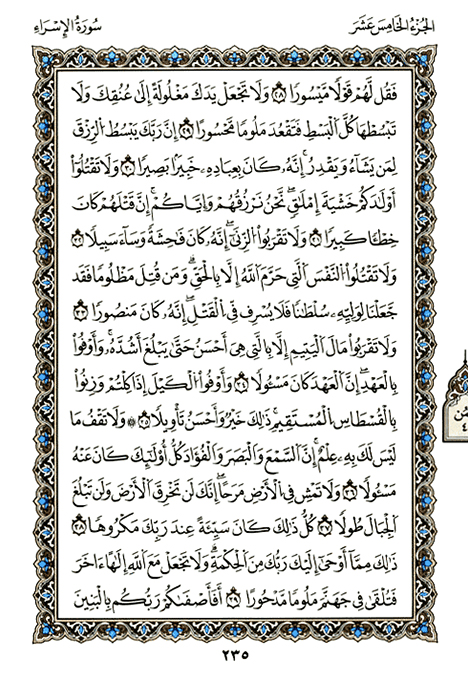 الجُزْءُ الخَامِسَ عَشَرَ
سُورَةُ الإِسْرَاءِ
فَقُل لَّهُمْ قَوْلًا مَّيْسُورًا ٢٨ وَلَا تَجْعَلْ يَدَكَ مَغْلُولَةً إِلَىٰ عُنُقِكَ وَلَا
تَبْسُطْهَا كُلَّ ٱلْبَسْطِ فَتَقْعُدَ مَلُومًا مَّحْسُورًا ٢٩ إِنَّ رَبَّكَ يَبْسُطُ ٱلرِّزْقَ
لِمَن يَشَآءُ وَيَقْدِرُ إِنَّهُۥ كَانَ بِعِبَادِهِۦ خَبِيرًۢا بَصِيرًا ٣٠ وَلَا تَقْتُلُوٓا۟
أَوْلَٰدَكُمْ خَشْيَةَ إِمْلَٰقٍ نَّحْنُ نَرْزُقُهُمْ وَإِيَّاكُمْ إِنَّ قَتْلَهُمْ كَانَ
خِطْـًٔا كَبِيرًا ٣١ وَلَا تَقْرَبُوا۟ ٱلزِّنَىٰٓ إِنَّهُۥ كَانَ فَٰحِشَةً وَسَآءَ سَبِيلًا ٣٢
وَلَا تَقْتُلُوا۟ ٱلنَّفْسَ ٱلَّتِي حَرَّمَ ٱللَّهُ إِلَّا بِٱلْحَقِّ وَمَن قُتِلَ مَظْلُومًا فَقَدْ
جَعَلْنَا لِوَلِيِّهِۦ سُلْطَٰنًا فَلَا يُسْرِف فِّي ٱلْقَتْلِ إِنَّهُۥ كَانَ مَنصُورًا ٣٣
وَلَا تَقْرَبُوا۟ مَالَ ٱلْيَتِيمِ إِلَّا بِٱلَّتِي هِيَ أَحْسَنُ حَتَّىٰ يَبْلُغَ أَشُدَّهُۥ وَأَوْفُوا۟
بِٱلْعَهْدِ إِنَّ ٱلْعَهْدَ كَانَ مَسْـُٔولًا ٣٤ وَأَوْفُوا۟ ٱلْكَيْلَ إِذَا كِلْتُمْ وَزِنُوا۟
بِٱلْقُسْطَاسِ ٱلْمُسْتَقِيمِ ذَٰلِكَ خَيْرٌ وَأَحْسَنُ تَأْوِيلًا ٣٥ ۞ وَلَا تَقْفُ مَا
لَيْسَ لَكَ بِهِۦ عِلْمٌ إِنَّ ٱلسَّمْعَ وَٱلْبَصَرَ وَٱلْفُؤَادَ كُلُّ أُو۟لَٰٓئِكَ كَانَ عَنْهُ
مَسْـُٔولًا ٣٦ وَلَا تَمْشِ فِي ٱلْأَرْضِ مَرَحًا إِنَّكَ لَن تَخْرِقَ ٱلْأَرْضَ وَلَن تَبْلُغَ
ٱلْجِبَالَ طُولًا ٣٧ كُلُّ ذَٰلِكَ كَانَ سَيِّئَةً عِندَ رَبِّكَ مَكْرُوهًا ٣٨
ذَٰلِكَ مِمَّآ أَوْحَىٰٓ إِلَيْكَ رَبُّكَ مِنَ ٱلْحِكْمَةِ وَلَا تَجْعَلْ مَعَ ٱللَّهِ إِلَٰهًا ءَاخَرَ
فَتُلْقَىٰ فِي جَهَنَّمَ مَلُومًا مَّدْحُورًا ٣٩ أَفَأَصْفَىٰكُمْ رَبُّكُم بِٱلْبَنِينَ
٢٣٥